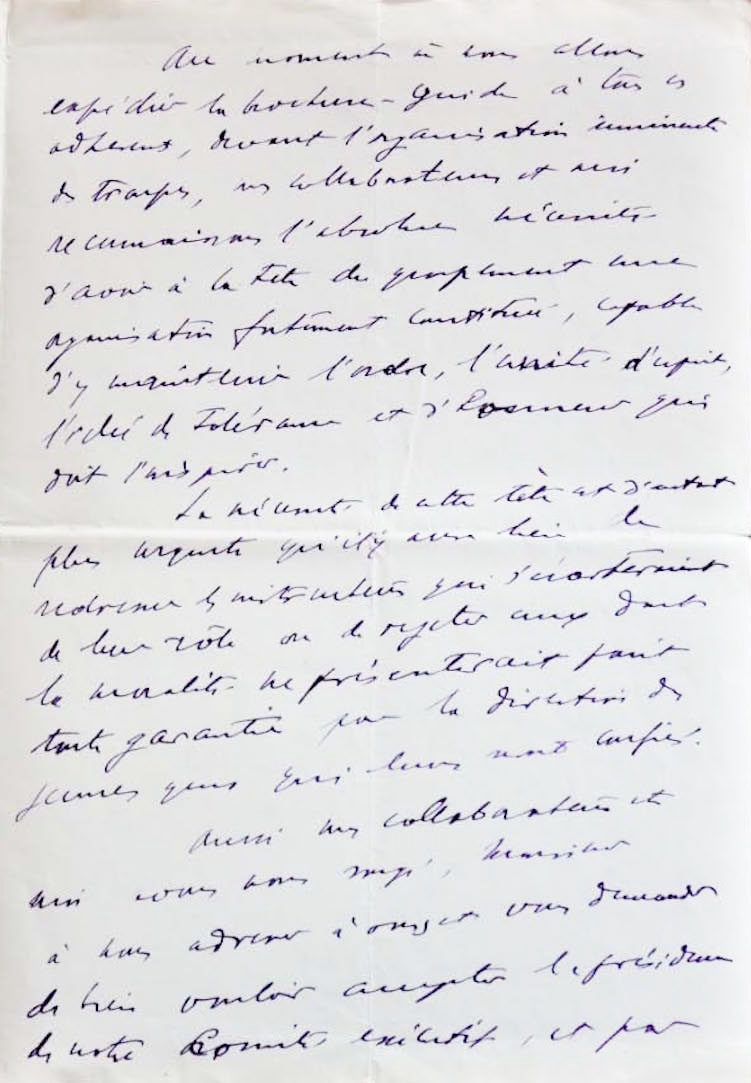 Au moment où nous allons
expédier la brochure-guide à tous ces
adhérents, devant l'organisation imminente
des troupes, mes collaborateurs et moi
reconnaissons l'absolue nécessité
d'avoir à la tête du groupement une
organisation fortement constituée, capable
d'y maintenir l'ordre, l'unité d'esprit,
l'idée de tolérance et d'honneur qui
doit l'inspirer.
La nécessité de cette tête est d'autant
plus urgente qu'il y aura lieu de
redresser les instructeurs qui s'écarteraient
de leur rôle ou de rejeter ceux dont
la moralité ne présenterait point
toute garantie pour la direction des
jeunes gens qui leur sont confiés.
Aussi mes collaborateurs et
moi avons nous songé, Monsieur
à nous adresser à vous vous demander
de bien vouloir accepter la présidence
de notre Comité exécutif, et par